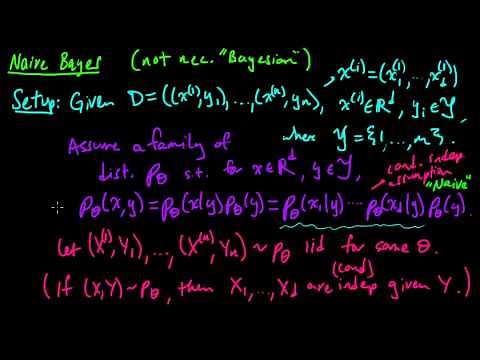 Naive Bayes (not nec. "Bayesian")
x^(i) = (x_1^(i), ..., x_d^(i))
Setup: Given D = ((x^(1), y_1), ..., (x^(n), y_n)), x^(i) ∈ R^d, y_i ∈ Y,
where Y = {1, ..., m}.
Assume a family of
dist. p_θ s.t. for x ∈ R^d, y ∈ Y,
cond. indep assumption "Naive"
p_θ(x,y) = p_θ(x|y) p_θ(y) = p_θ(x_1|y) ... p_θ(x_d|y) p_θ(y).
Let (X^(1), Y_1), ..., (X^(n), Y_n) ~ p_θ iid for some θ.
(cond)
(If (X,Y) ~ p_θ, then X_1, ..., X_d are indep given Y.)